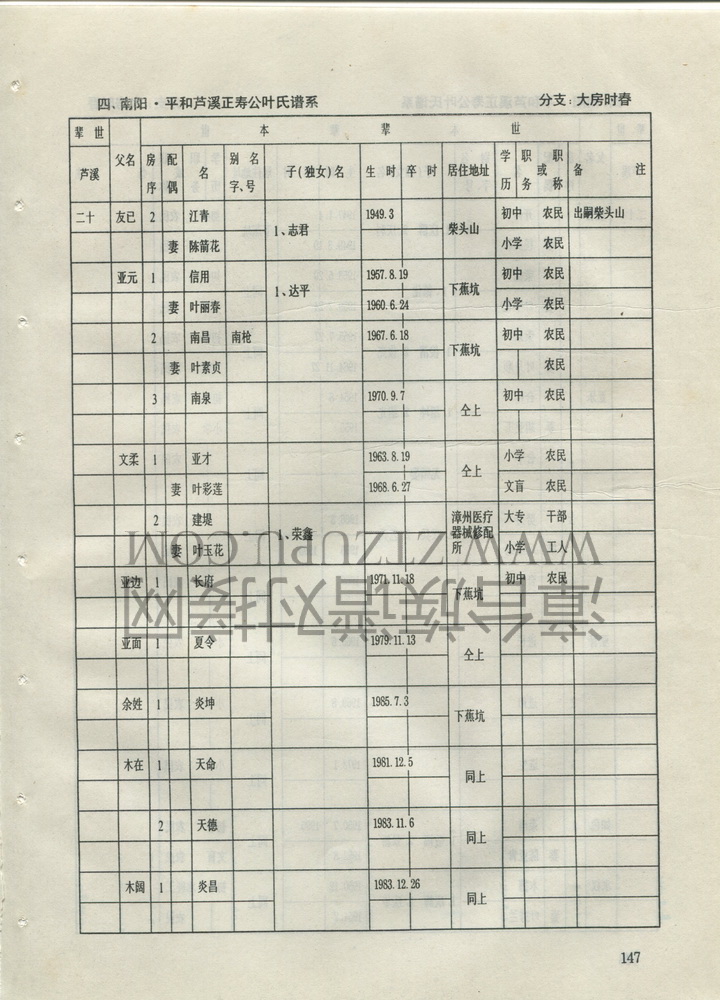 四、南阳·平和芦溪正寿公叶氏谱系 分支：大房时春
辈世 本 辈 世
芦溪 父名 房序 配偶 名 别名字、号 子(独女)名 生时 卒时 居住地址 学历 职或职务称 备注
二十 友已 2 江青 1、志君 1949.3 柴头山 初中 农民 出嗣柴头山
妻 陈箭花 小学 农民
亚元 1 信用 1、达平 1957.8.19 下蕉坑 初中 农民
妻 叶丽春 1960.6.24 小学 农民
2 南昌 南枪 1967.6.18 下蕉坑 初中 农民
妻 叶素贞 农民
3 南泉 1970.9.7 仝上 初中 农民
文柔 1 亚才 1963.8.19 仝上 小学 农民
妻 叶彩莲 1968.6.27 文盲 农民
2 建堤 1、荣鑫 漳州医疗器械修配所 大专 干部
妻 叶玉花 小学 工人
亚边 1 长府 1971.11.18 下蕉坑 初中 农民
亚面 1 夏令 1979.11.13 仝上
余姓 1 炎坤 1985.7.3 下蕉坑
木在 1 天命 1981.12.5 同上
2 天德 1983.11.6 同上
木阔 1 炎昌 1983.12.26 同上
147
漳台族谱对接网
WWW.ZTZUPU.COM